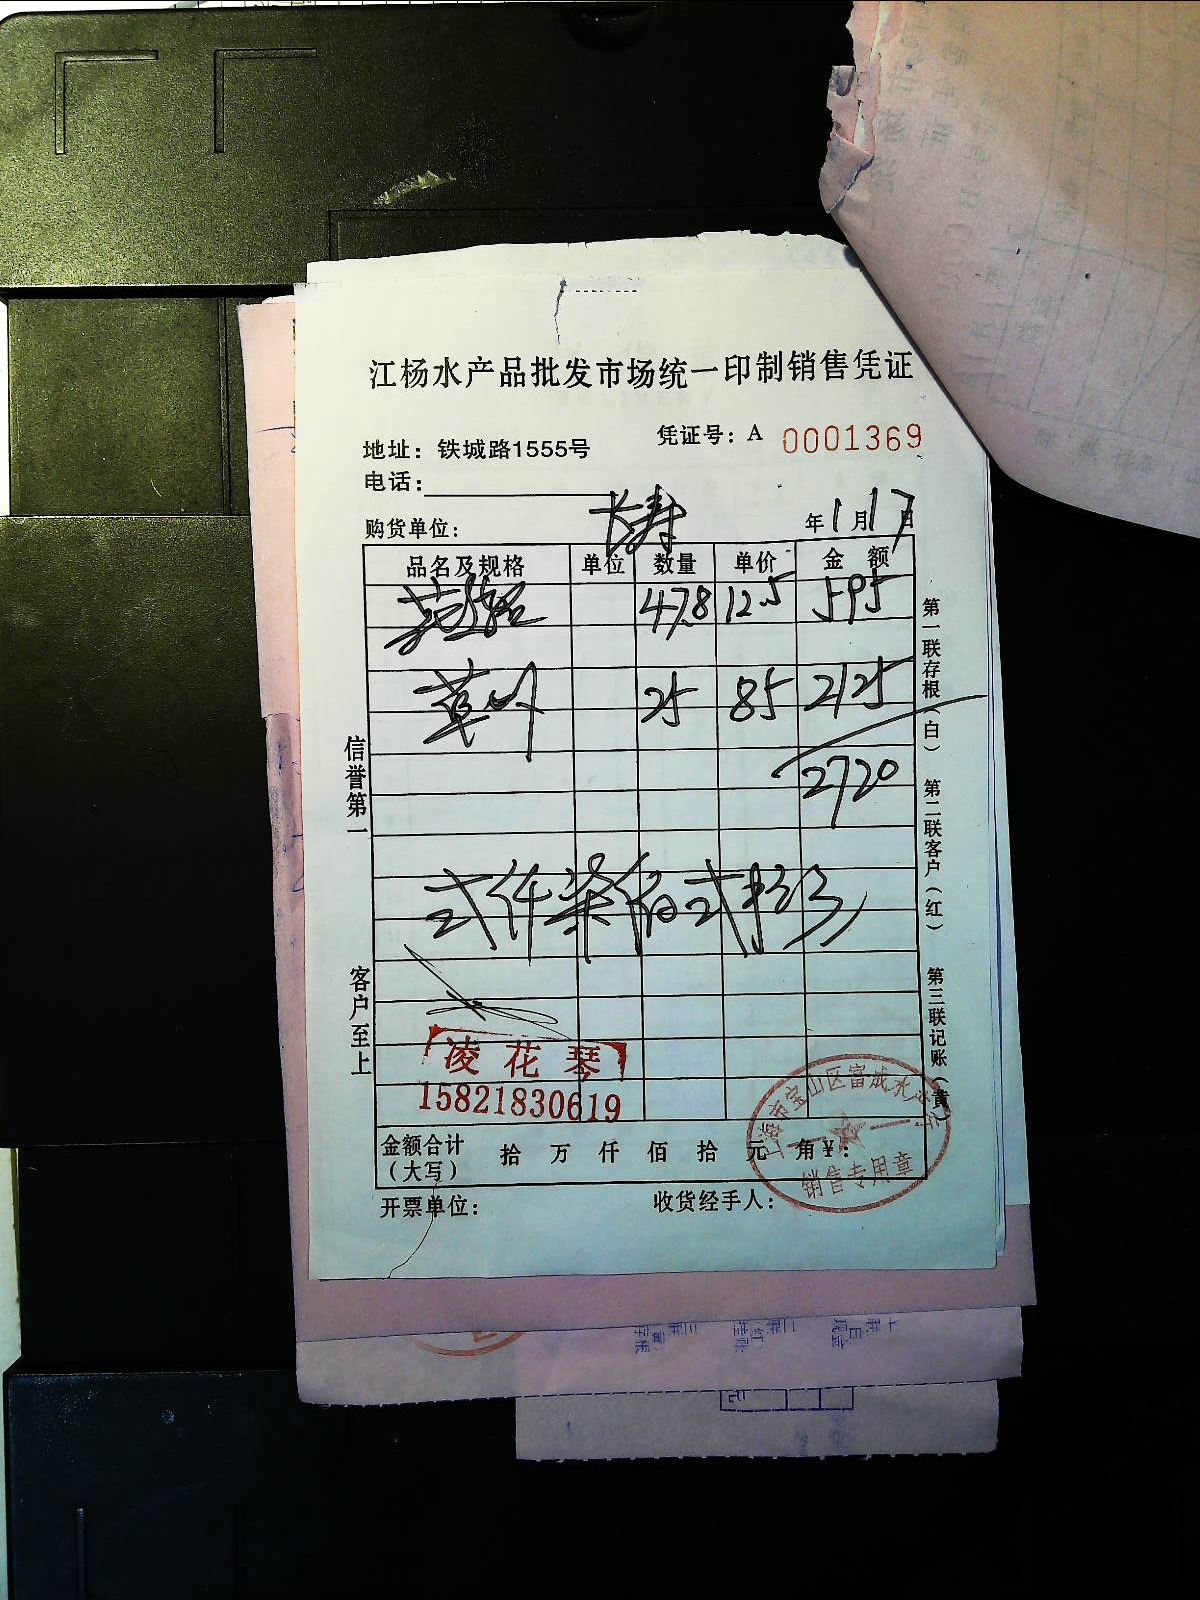 江杨水产品批发市场统一印制销售凭证
地址：铁城路1555号
凭证号：A 0001369
电话：
购货单位： 长寿
年1月17日
品名及规格 单位 数量 单价 金额
花鲢 47.8 12.5 595
草 25 85 2125
2720
弍仟柒佰弍拾
凌花琴
15821830619
金额合计（大写） 拾 万 仟 佰 拾 元 角 ¥：
开票单位：
收货经手人：
信誉第一
客户至上
第一联存根（白） 第二联客户（红） 第三联记账（黄）
上海市宝山区富成水
销售专用章